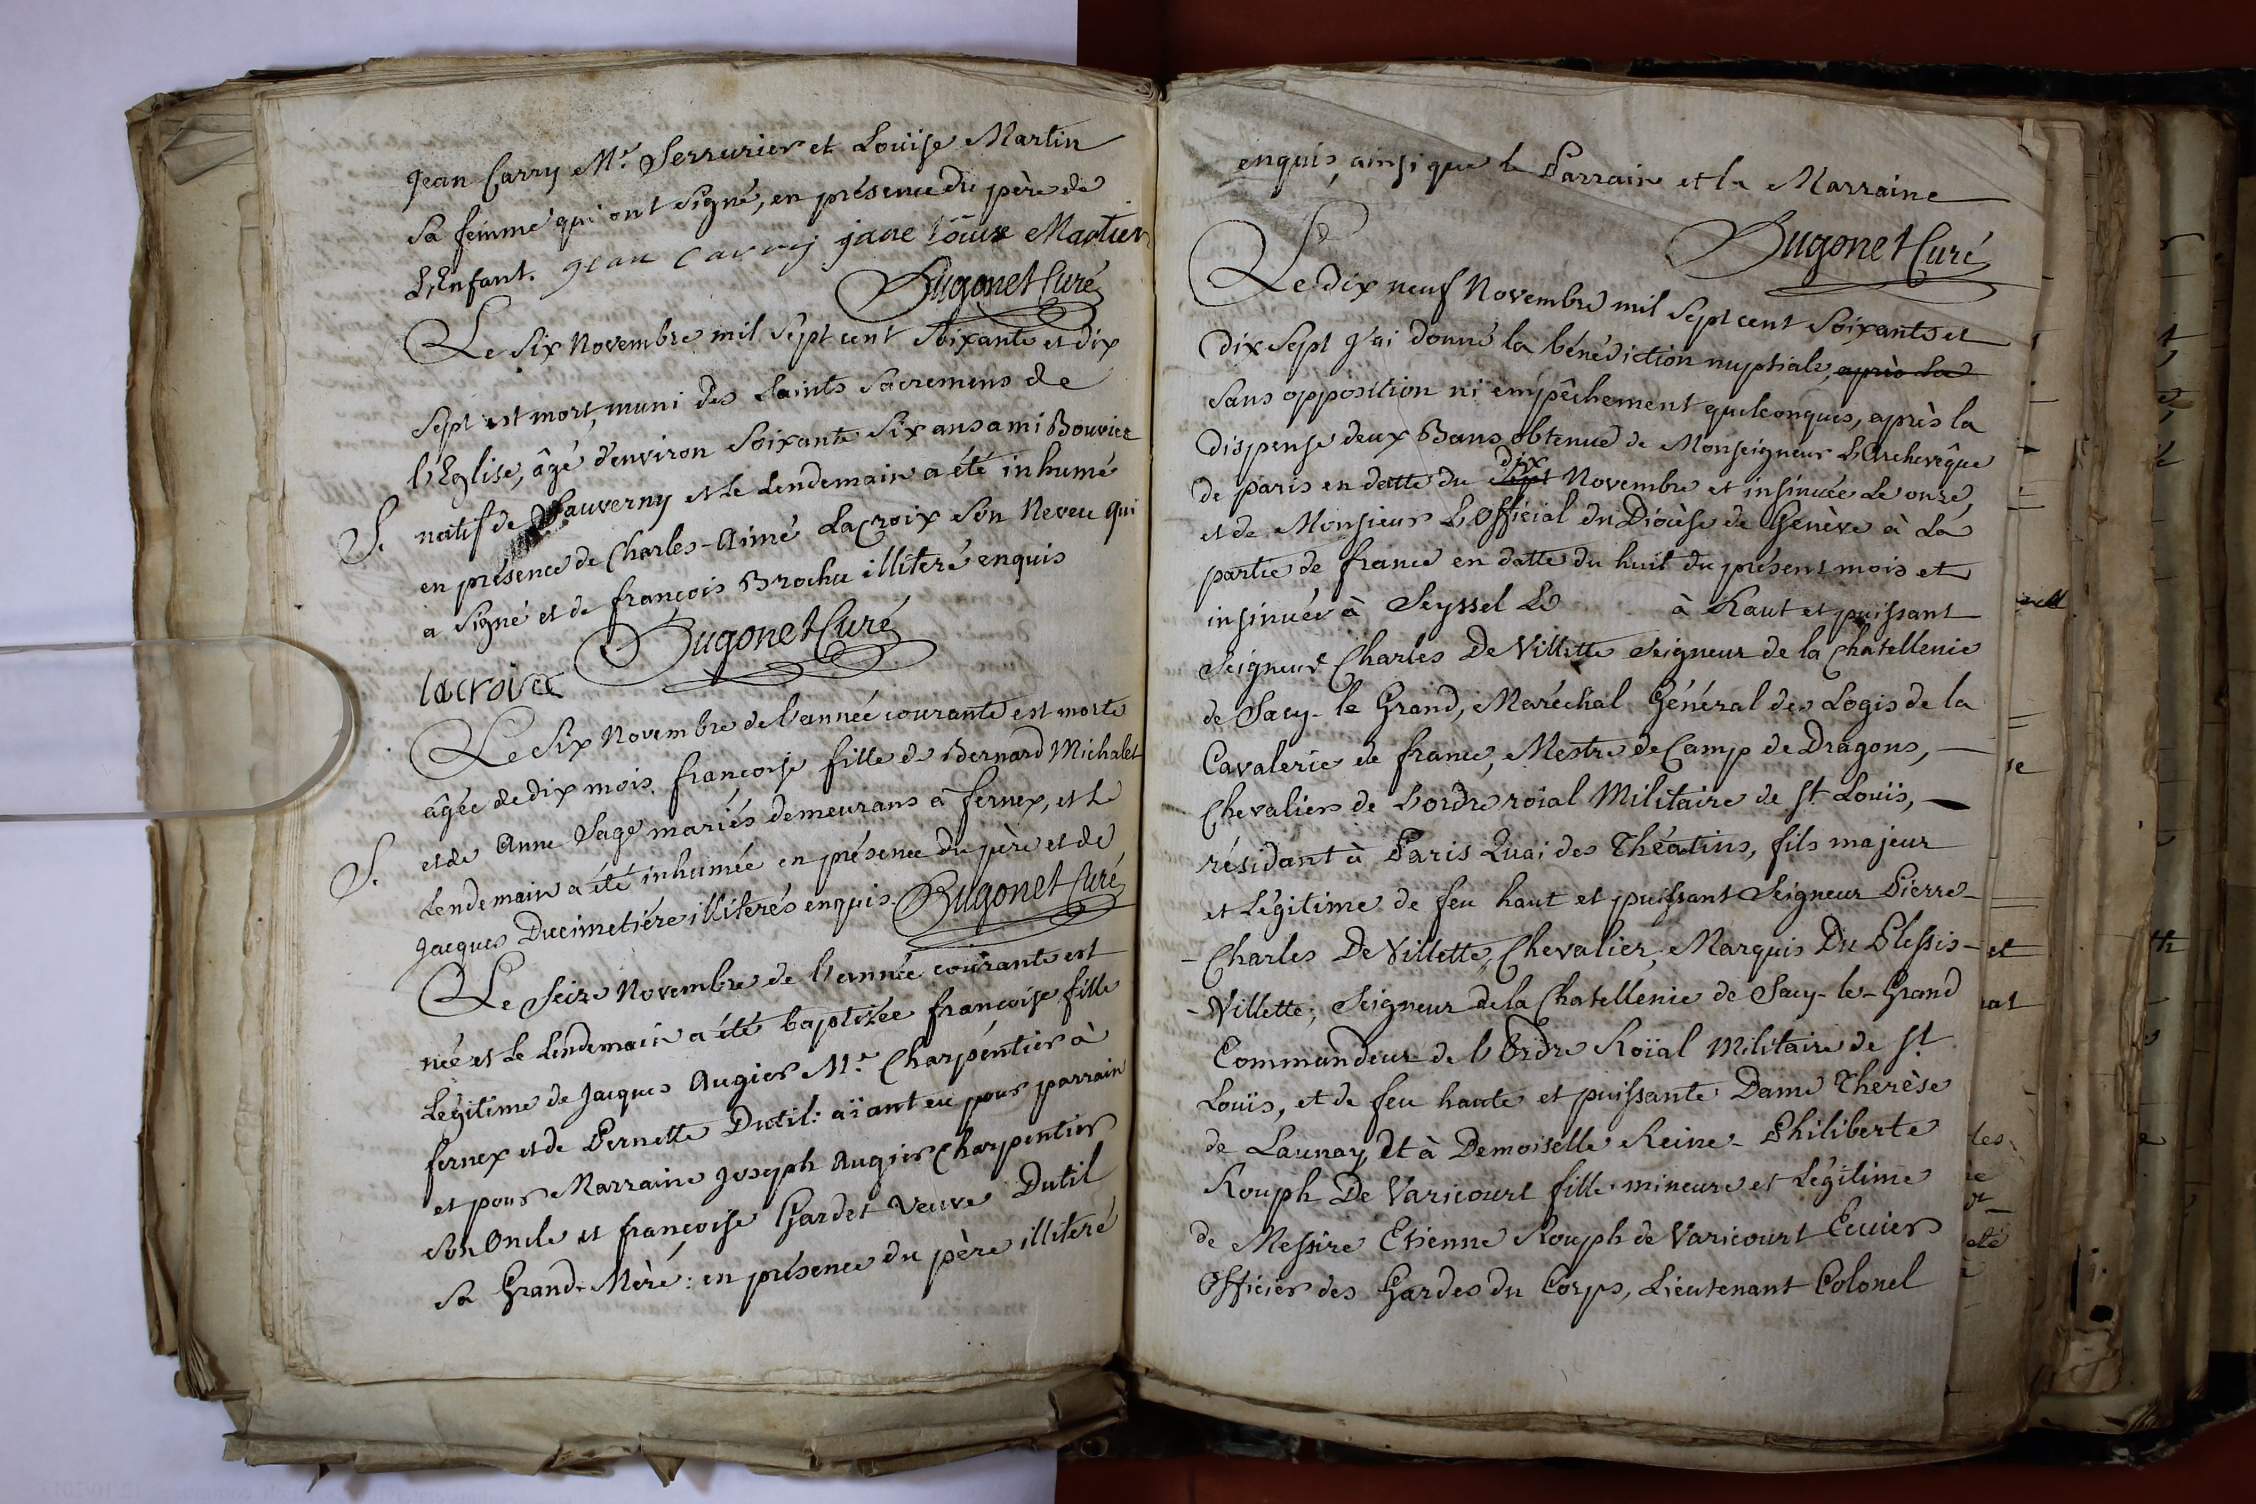 Jean Carry Mr. Serrurier et Loüise Martin
sa femme qui ont signé, en présence du père de
L'Enfant. jean carry jane loüise Martin
Hugonet Curé
Le six Novembre mil sept cent soixante et dix
sept est mort, muni des saints sacremens de
l'Eglise, âgé d'environ soixante six ans ami Bouvier
S. natif de Sauverny et le Lendemain a été inhumé
en présence de Charles-Aimé LaCroix son Neveu qui
a signé et de françois Brochu illiteré enquis
Hugonet Curé
lacroix
Le six Novembre de l'année courante est morte
âgée de dix mois françoise fille de Bernard Michalet
S. et de Anne Sage mariés demeurans à fernex, et le
Lendemain a été inhumée en présence du père et de
Jacques Ducimetiére illiterés enquis. Hugonet Curé
Le seize Novembre de l'année courante est
née et le Lendemain a été baptisée françoise fille
Légitime de Jacques Augier Me. Charpentier à
fernex et de Pernette Dutil: aïant eu pour parrain
et pour Marraine Joseph Augier Charpentier
son Oncle et françoise Gardet veuve Dutil
sa Grand-Mère: en présence du père illiteré
enquis, ainsi que le Parrain et la Marraine
Hugonet Curé
Le dix neuf Novembre mil sept cent soixante et
dix sept j'ai donné la bénédiction nuptiale, après la
sans opposition ni empêchement quelconques, après la
dispense deux Bans obtenue de Monseigneur L'Archevêque
dix
de paris en datte du sept Novembre et insinuée le onze,
et de Monsieur L'Official du Diocèse de Genève à La
partie de france en datte du huit du présent mois et
insinuée à Seyssel Le à haut et puissant
seigneur Charles De Villette seigneur de la Chatellenie
de Sacy-le Grand, Maréchal Général des Logis de la
Cavalerie de france, Mestre de Camp de Dragons,
Chevalier de L'ordre roïal Militaire de St. Loüis,
résidant à Paris Quai des Théatins, fils majeur
et Légitime de feu haut et puissant seigneur Pierre-
-Charles De Villette, Chevalier, Marquis Du Plessis-
-Villette, seigneur de la Chatellenie de Sacy-le-Grand
Commandeur de l'Ordre Roïal Militaire de St.
Loüis, et de feu haute et puissante Dame Therèse
de Launay, et à Demoiselle Reine-Philiberte
Rouph De Varicourt fille mineure et Légitime
de Messire Etienne Rouph de Varicourt Ecuier
Officier des Gardes du Corps, Lieutenant Colonel